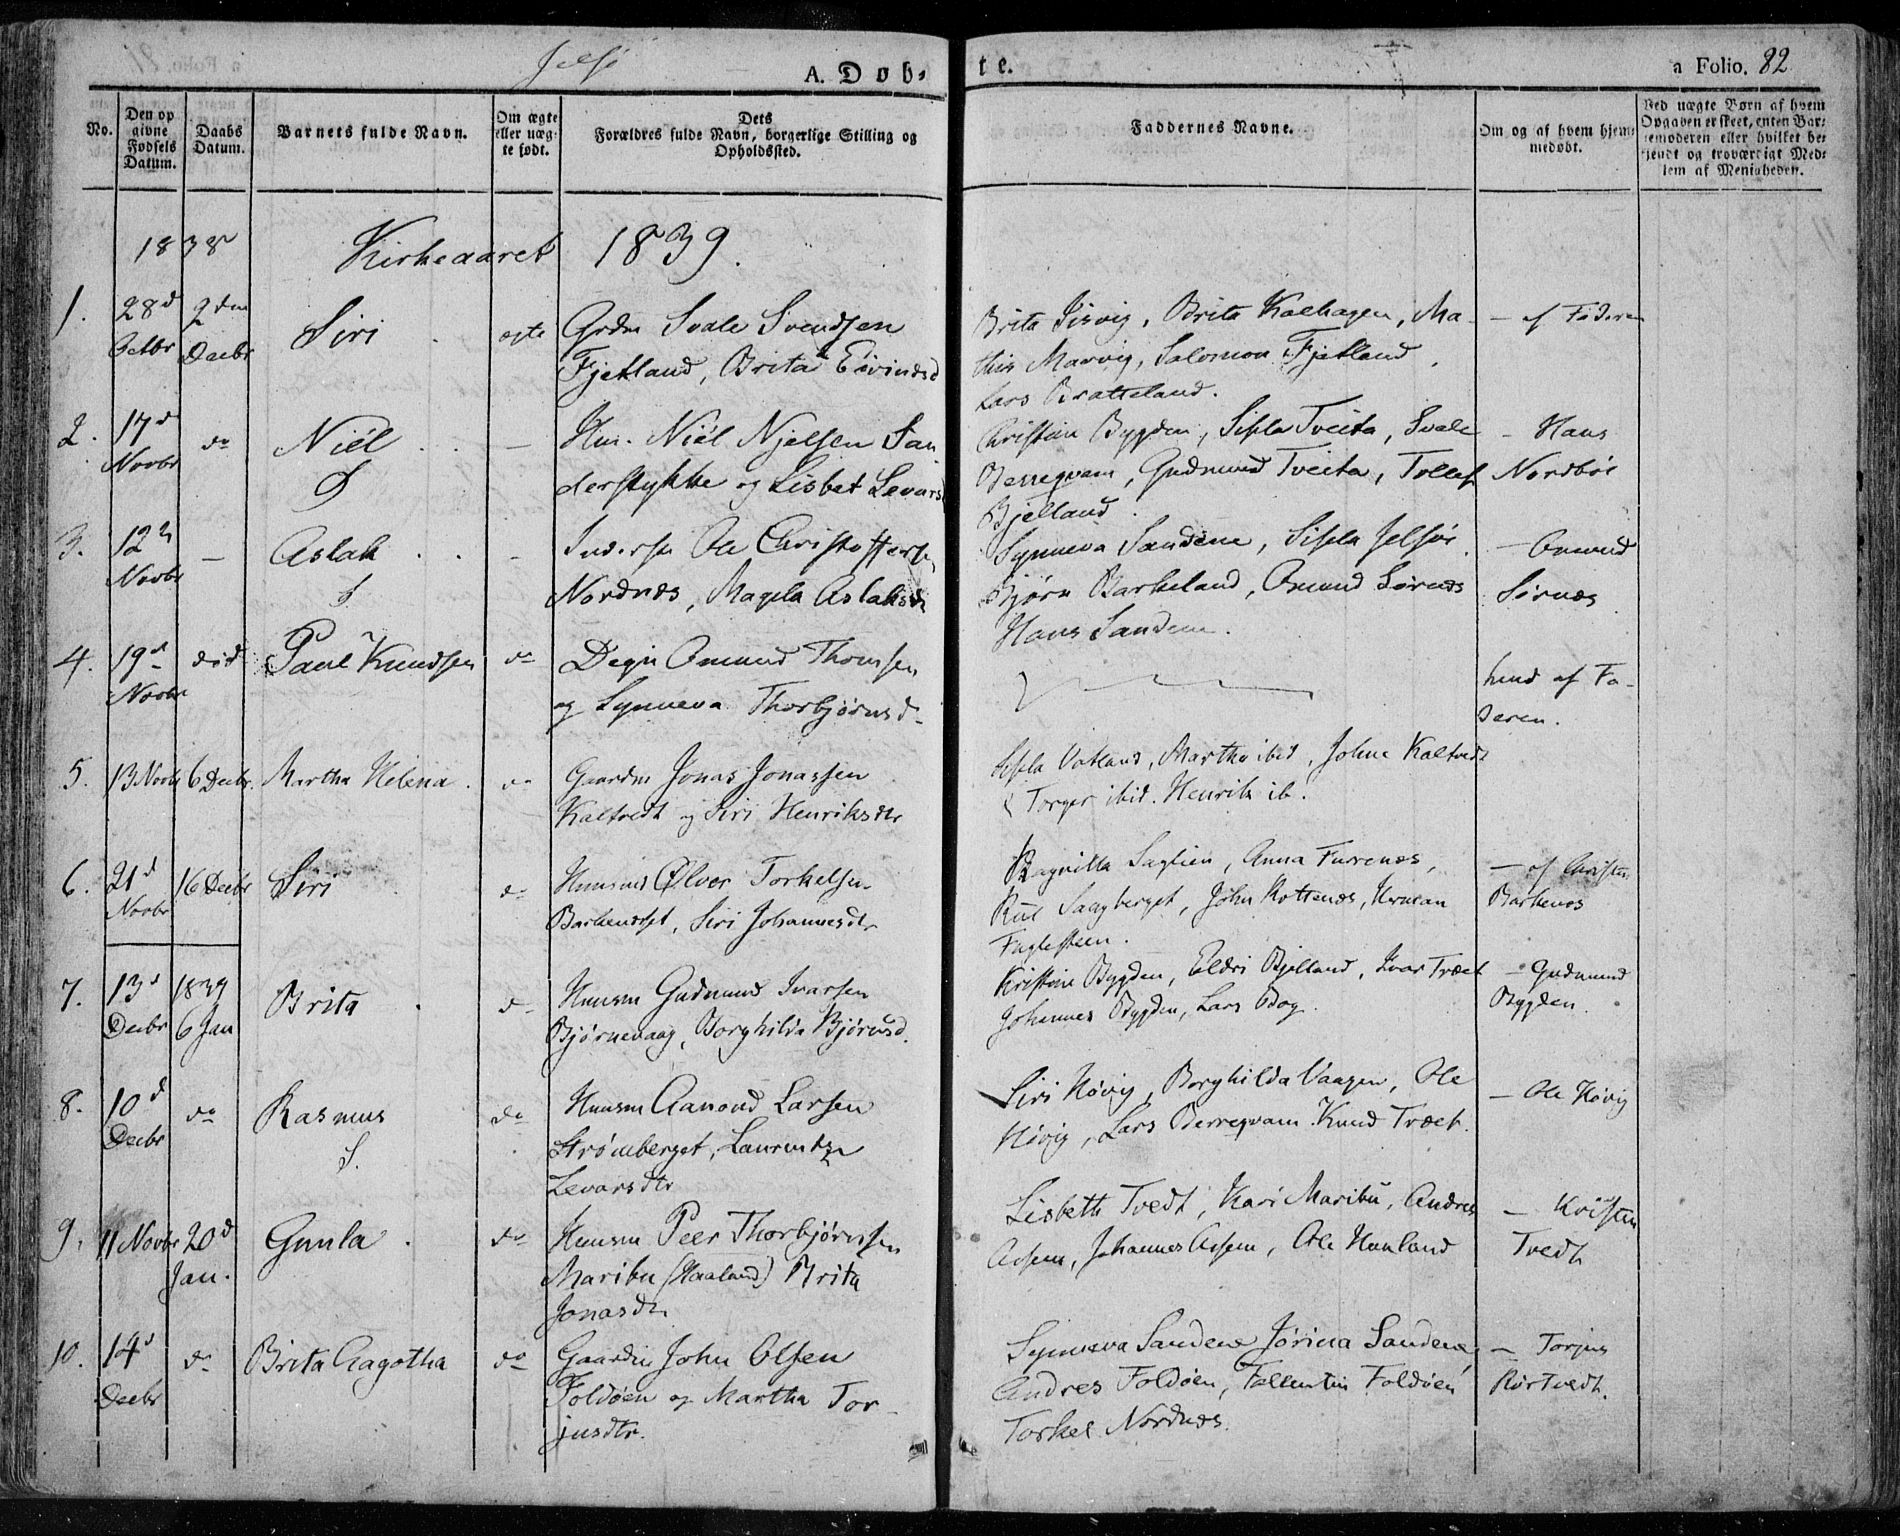 Jelsø
A. Døb-
te.
a Folio. 82
No.
Den op
givne
Fødsels
Datum.
Daabs
Datum.
Barnets fulde Navn.
Om ægte
eller uæg-
te født.
Dets
Forældres fulde Navn, borgerlige Stilling og
Opholdssted.
Faddernes Navne.
Om og af hvem hjem-
medøbt.
Ved uægte Børn af hvem
Opgaven er skeet, enten Bar-
nemoderen eller hvilket be-
kjendt og troværdigt Med-
lem af Menigheden.
1838 Kirkeaaret 1839.
1. 28d 2den Siri ægte Grdm Svale Svendsen
Octbr Decbr Fjetland, Brita Eivindsd
Brita Jisvig, Brita Kalhagen, Ma-
this Marvig, Salomon Fjetland
Lars Bratteland.
– af Faderen
2. 17d Novbr do Niél – Hm. Niél Njelsen San
derstykke og Lisbet Levars
Christine Bygden, Sisela Tveita, Svale
Berreqvam, Gudmund Tveita, Tollef
Bjelland.
– Hans
Nordbøe
3. 12te Novbr – Aslak – Inderst Ole Christoffersen
Nordnæs, Magela Aslaksd
Synneva Sandene, Sisela Jelsøe
Bjørn Barkeland, Omund Sørnæs
Hans Sandene.
– Omund
Sørnæs
4. 19d Novbr død Paul Knudsen do Degn Omund Thomsen
og Synneva Thorbjørnsd.
hmd af Fa-
deren.
5. 13 Novb 6 Decbr. Martha Helena. do Gaardm Jonas Jonassen
Kaltvedt og Siri Henriksdtr
Sisela Vatland, Martha ibid, Johne Kaltvedt
Torger ibid. Henrik ib.
6. 21d Novbr 16 Decbr Siri do Huusmd Ølver Torkelsen
Barkenæsset, Siri Johannesdtr
Ragnilla Saglien, Anna Furrenæs,
Saagberget, John Kottenæs, Herman
Fuglesteen.
– af Christen
Barkenæs
7. 13d Decbr 1839 6 Jan Brita do Huusm Gudmund Ivarsen
Bjørnevaag, Borghilda Bjørnsd.
Kristine Bygden, Eldri Bjelland, Ivar Træet
Johannes Bygden, Lars Bog
– Gudmund
Bygden.
8. 10d Decbr do Rasmus do Huusm Aamond Larsen
Strømberget, Laurentze
Levarsdtr
Siri Høvig, Borghilda Vaagen, Ole
Høvig, Lars Berreqvam. Knud Træet.
– Ole Høvig
9. 11 Novbr 20d Jan. Gunla do Huusm Peer Thorbjørnsen
Maribu (Haaland) Brita
Jonasdtr
Lisbeth Tvedt, Kari Maribu, Andres
Aasen, Johannes Aasen, Ole Haaland
– Kristen
Tvedt
10. 14d Decbr do Brita Aagotha do Gaardm John Olsen
Foldøen og Martha Tor-
jusdtr.
Synneva Sandene, Jørina Sandene,
Andres Foldøen, Fallentin Foldøen
Torkel Nordnæs.
– Torjus
Rørtvedt.